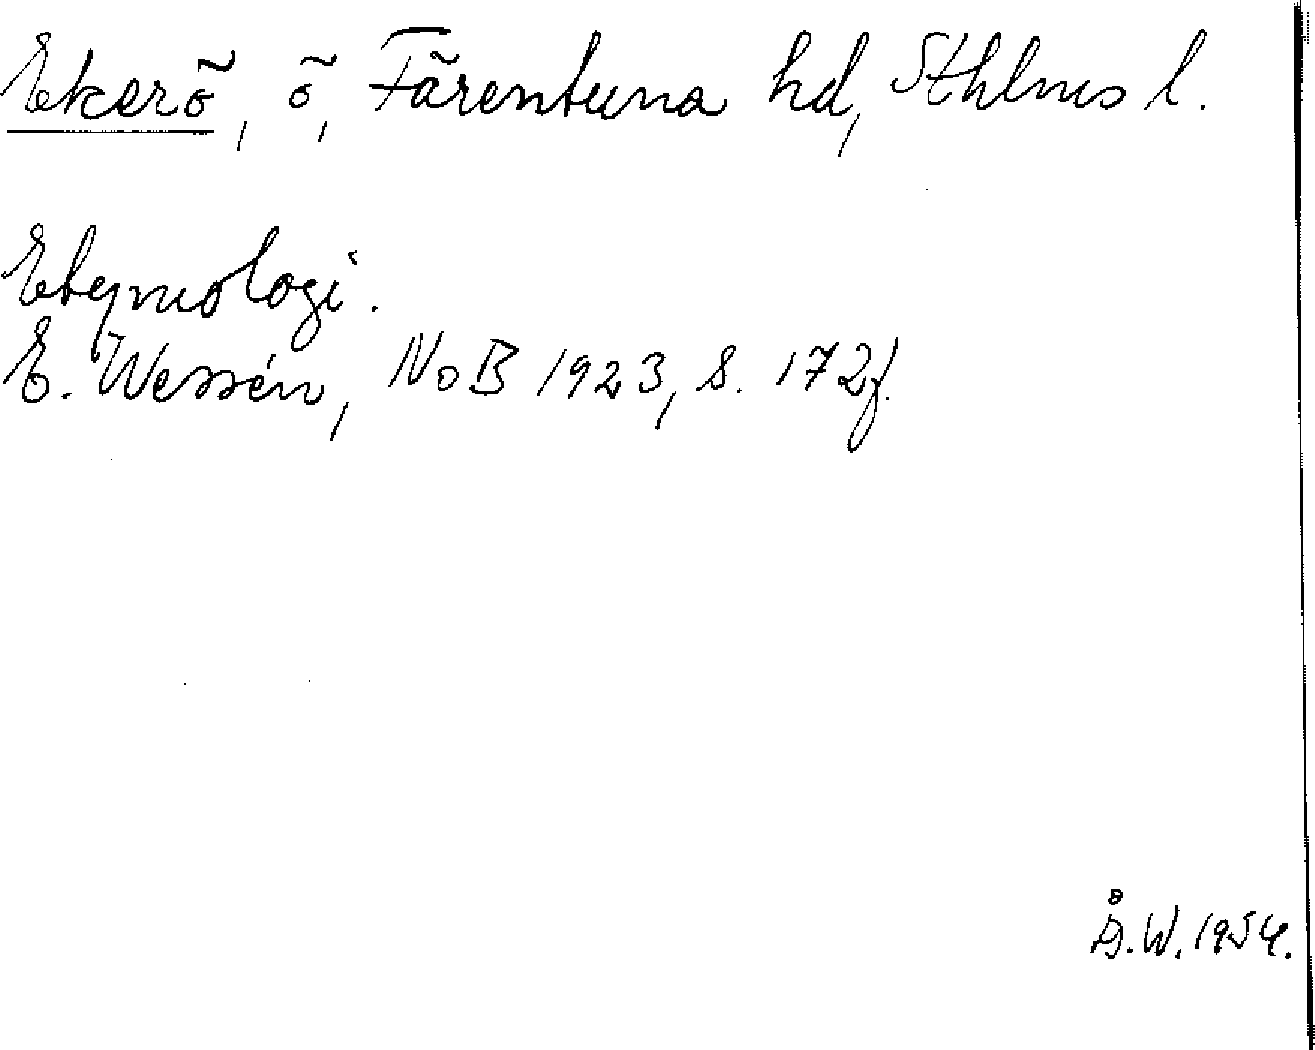 Ekerö, ö, Färentuna hd, Sthlms l.
Etymologi.
E. Wessén, NoB 1923, s. 172f.
Å.W. 1954.